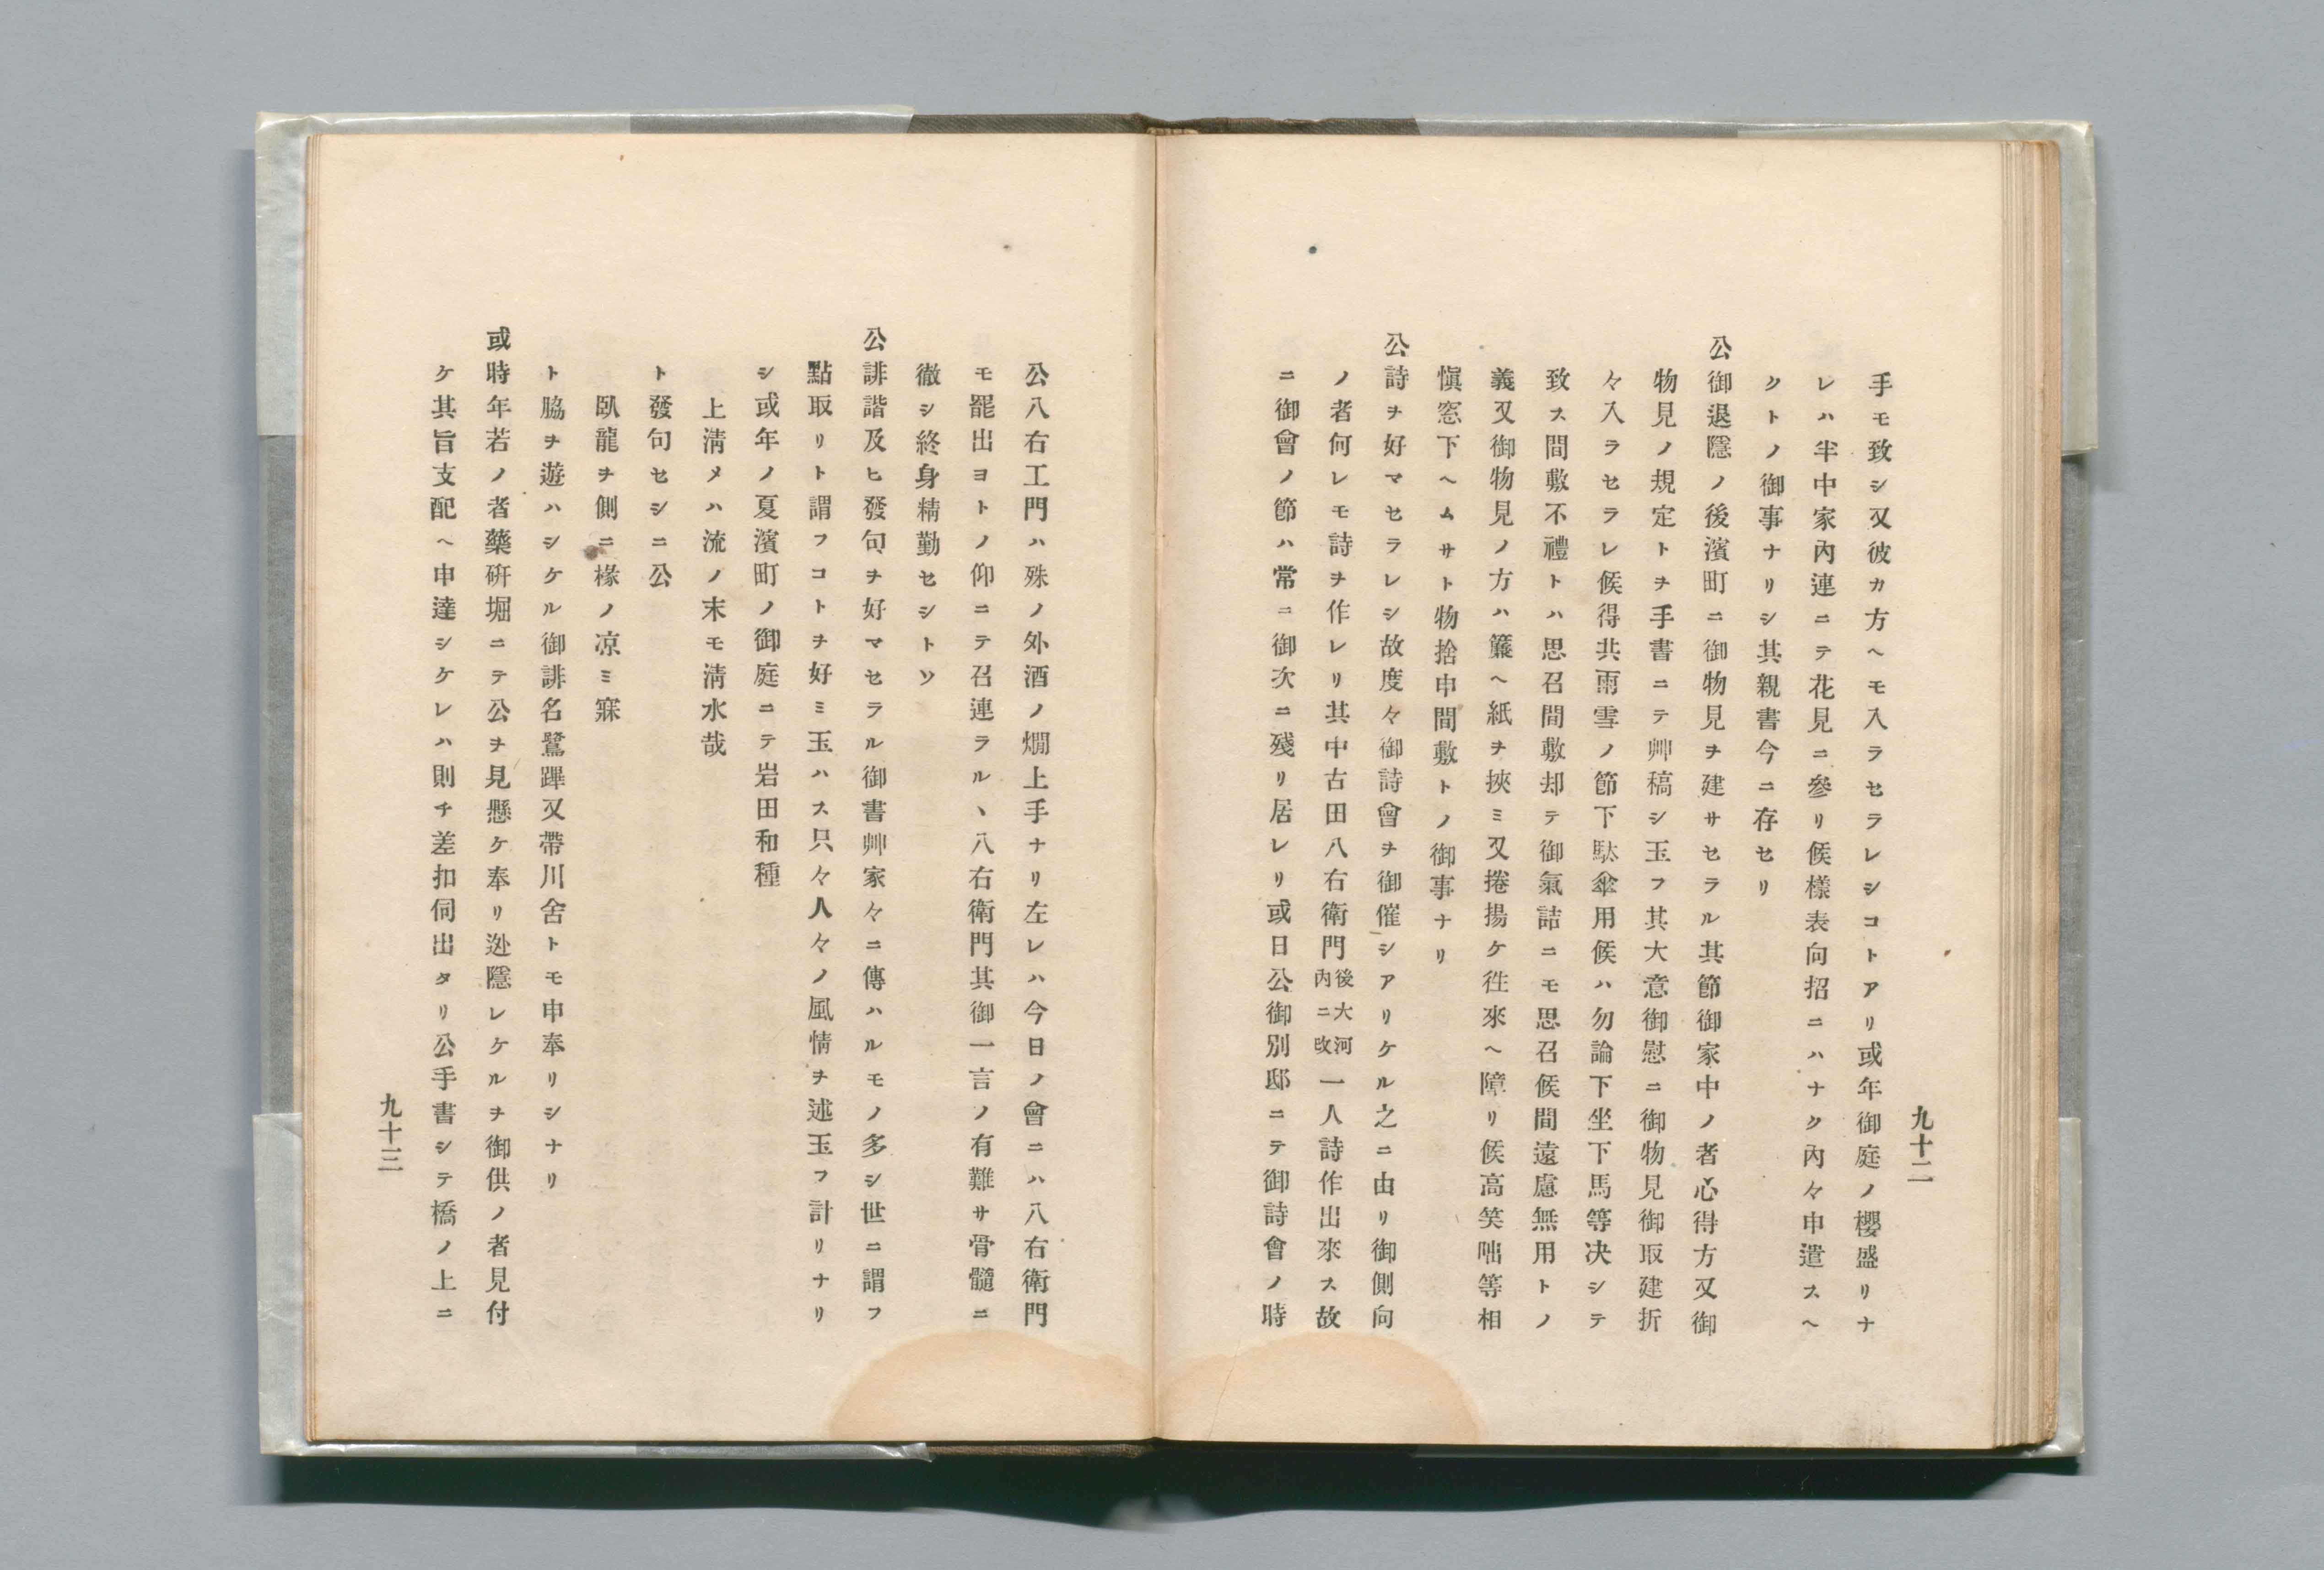 九十二
手モ致シ又彼カ方ヘモ入ラセラレシコトアリ或年御庭ノ櫻盛リナ
レハ半中家內連ニテ花見ニ參リ候樣表向招ニハナク內々申遣スヘ
クトノ御事ナリシ其親書今ニ存セリ
公御退隱ノ後濱町ニ御物見ヲ建サセラル其節御家中ノ者心得方又御
物見ノ規定トヲ手書ニテ艸稿シ玉フ其大意御慰ニ御物見御取建折
々入ラセラレ候得共雨雪ノ節下駄傘用候ハ勿論下坐下馬等決シテ
致ス間敷不禮トハ思召間敷却テ御氣詰ニモ思召候間遠慮無用トノ
義又御物見ノ方ハ簾ヘ紙ヲ挾ミ又捲揚ケ徃來ヘ障リ候高笑咄等相
愼窓下ヘムサト物捨申間敷トノ御事ナリ
公詩ヲ好マセラレシ故度々御詩會ヲ御催シアリケル之ニ由リ御側向
ノ者何レモ詩ヲ作レリ其中古田八右衛門後大河內ニ改一人詩作出來ス故
ニ御會ノ節ハ常ニ御次ニ殘リ居レリ或日公御別邸ニテ御詩會ノ時
公八右工門ハ殊ノ外酒ノ燗上手ナリ左レハ今日ノ會ニハ八右衛門
モ罷出ヨトノ仰ニテ召連ラルヽ八右衛門其御一言ノ有難サ骨髓ニ
徹シ終身精勤セシトソ
公誹諧及ヒ發句ヲ好マセラル御書艸家々ニ傳ハルモノ多シ世ニ謂フ
點取リト謂フコトヲ好ミ玉ハス只々人々ノ風情ヲ述玉フ計リナリ
シ或年ノ夏濱町ノ御庭ニテ岩田和種
上淸メハ流ノ末モ淸水哉
ト發句セシニ公
臥龍ヲ側ニ椽ノ凉ミ寐
ト脇ヲ遊ハシケル御誹名鷺蹕又帶川舍トモ申奉リシナリ
或時年若ノ者藥硏堀ニテ公ヲ見懸ケ奉リ迯隱レケルヲ御供ノ者見付
ケ其旨支配ヘ申達シケレハ則チ差扣伺出タリ公手書シテ橋ノ上ニ
九十三